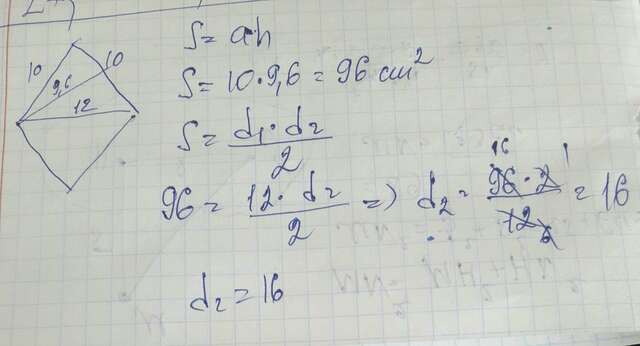 S = ah
10
10
9,6
12
S = 10 · 9,6 = 96 cm²
S = d₁ · d₂ / 2
96 = 12 · d₂ / 2 => d₂ = 96 · 2 / 12 = 16
16 1
d₂ = 16